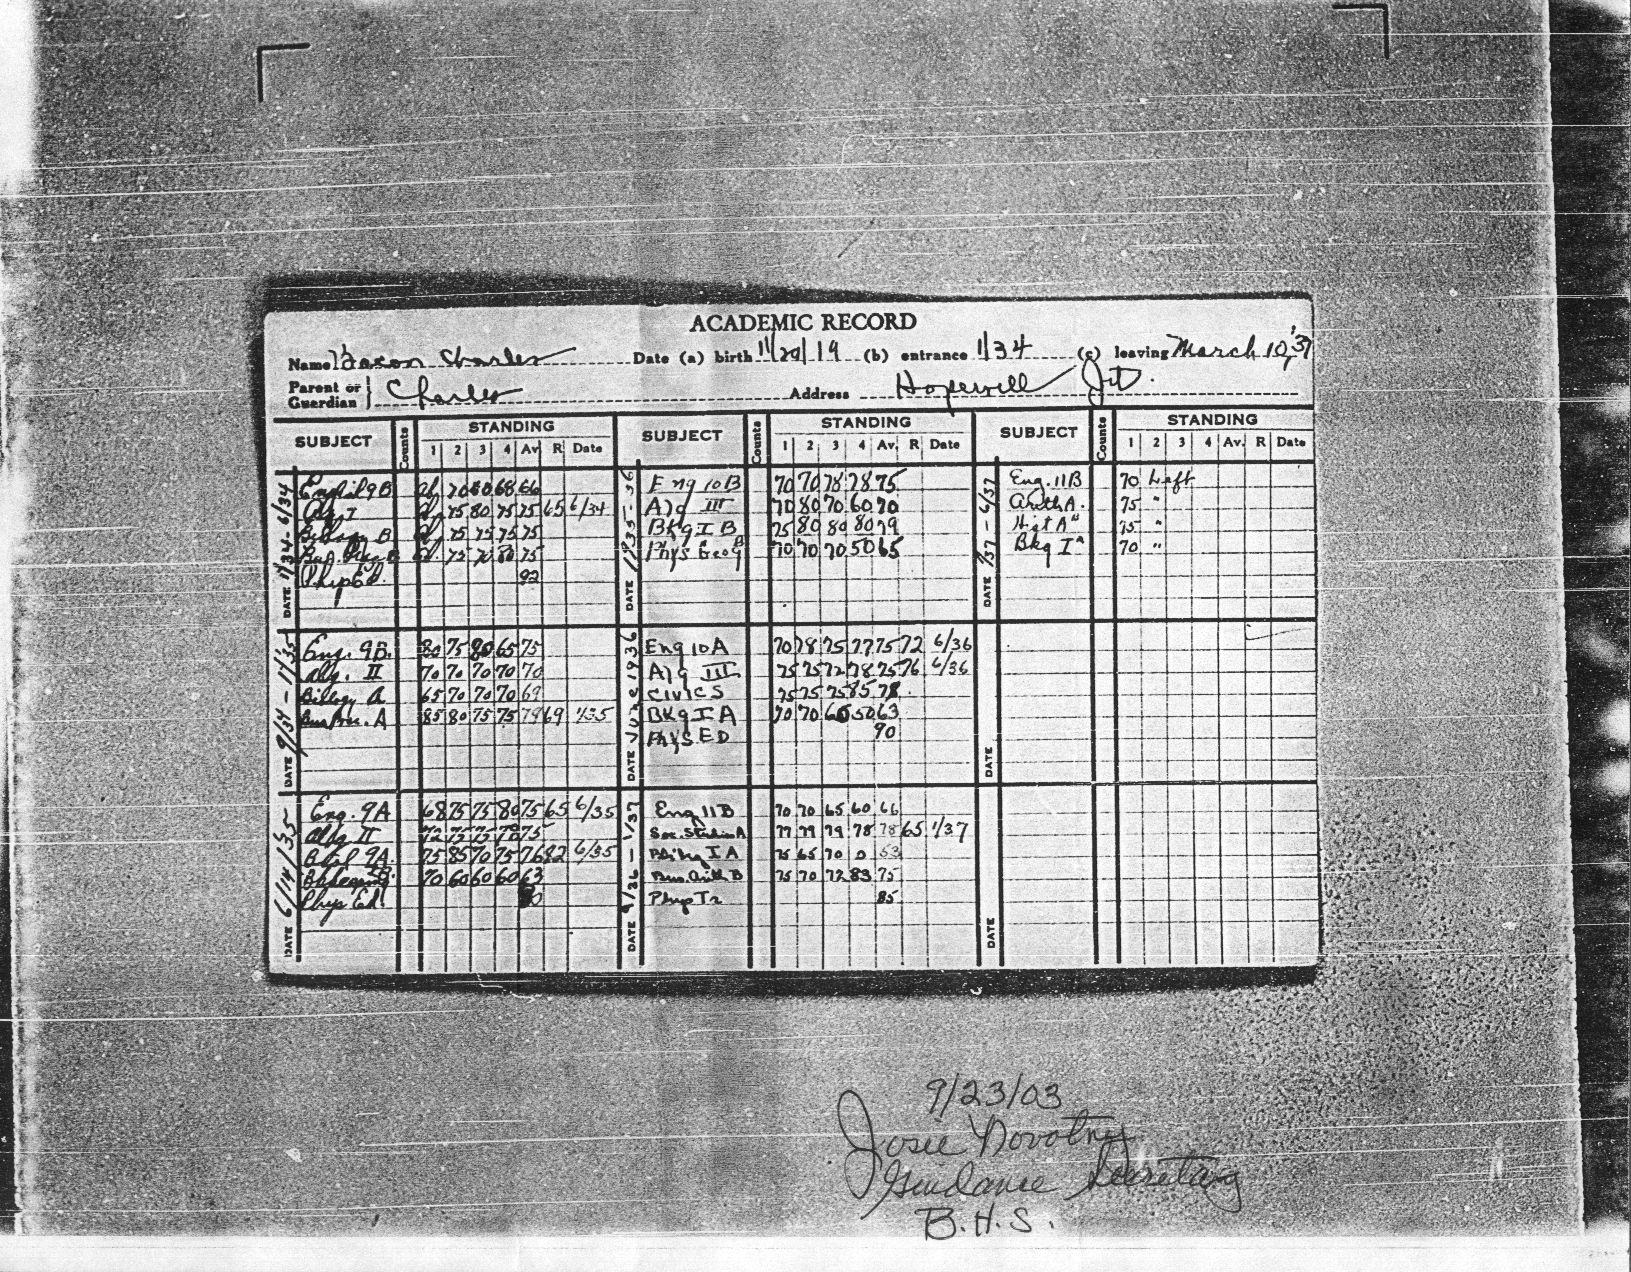 ACADEMIC RECORD
Name Charles Date (a) birth 11/20/19 (b) entrance 1/34 (c) leaving March 10, '37
Parent or Guerdian Charles Address Hopewell Jct.
SUBJECT Counts STANDING 1 2 3 4 Av. R Date
DATE 1/34-6/34
English 9B Ab. 70 60 68 66
Alg I Ab. 75 80 75 75 65 6/34
Biology B Ab. 75 75 75 75
B 75 70 80 75
Phys Ed. 92
DATE 9/34 - 1/35
Eng. 9B. 80 75 80 65 75
Alg. II 70 70 70 70 70
Biology A 65 70 70 70 69
A 85 80 75 75 79 69 1/35
DATE
Eng. 9A 68 75 75 80 75 65 6/35
Alg II 72 75 75 78 75
Biol 9A. 75 85 70 75 76 82 6/35
70 60 60 60 63
Phys Ed. 90
SUBJECT Counts STANDING 1 2 3 4 Av. R Date
DATE
Eng 10B 70 70 78 78 75
Alg III 70 80 70 60 70
Bkg I B 75 80 80 80 79
Phys Geog B 70 70 70 50 65
DATE June 1936
Eng 10A 70 78 75 77 75 72 6/36
Alg III 75 75 72 78 75 76 6/36
CIVICS 75 75 75 85 78
BKg I A 70 70 65 50 63
Phys ED 90
DATE 9/36 - 1/37
Eng 11B 70 70 65 60 66
Soc. Studies A 77 79 79 78 78 65 1/37
I A 75 65 70 0 53
Bus. Arith B 75 70 72 83 75
Phys Tr 85
SUBJECT Counts STANDING 1 2 3 4 Av. R Date
DATE 1/37 - 6/37
Eng. 11B 70 Left
Arith A. 75 "
Hist A" 75 "
Bkg I" 70 "
DATE
DATE
9/23/03
Josie Novotny
Guidance Secretary
B.H.S.